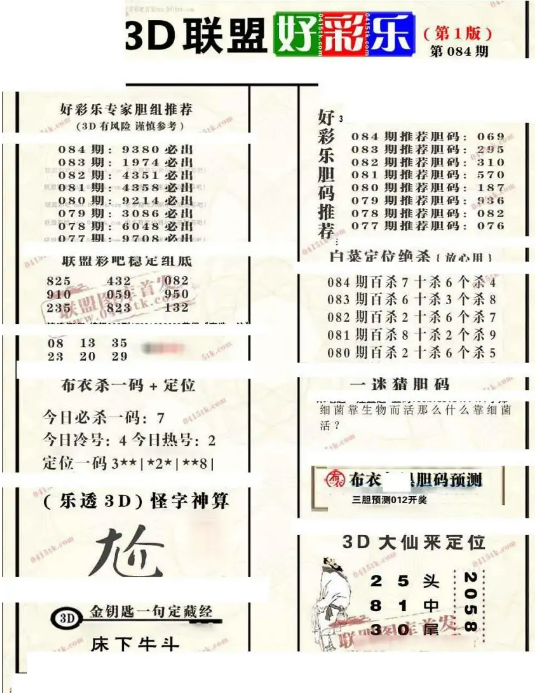 3D联盟好彩乐
(第1版)
第084期
好彩乐专家胆组推荐
(3D有风险 谨慎参考)
084期: 9380必出
083期: 1974必出
082期: 4351必出
081期: 4358必出
080期: 9214必出
079期: 3086必出
078期: 6048必出
077期: 9708必出
联盟彩吧稳定组底
825 432 082
910 059 950
235 823 132
08 13 35
23 20 29
布衣杀一码+定位
今日必杀一码: 7
今日冷号: 4 今日热号: 2
定位一码3**|*2*|**8|
(乐透3D)怪字神算
尬
3D
金钥匙一句定藏经
床下牛斗
好彩乐胆码推荐
3
084期推荐胆码: 069
083期推荐胆码: 295
082期推荐胆码: 310
081期推荐胆码: 570
080期推荐胆码: 187
079期推荐胆码: 936
078期推荐胆码: 082
077期推荐胆码: 076
白菜定位绝杀{放心用}
084期百杀7十杀6个杀4
083期百杀6十杀3个杀8
082期百杀2十杀6个杀7
081期百杀8十杀2个杀9
080期百杀2十杀6个杀5
一谜猜胆码
细菌靠生物而活那么什么靠细菌
活?
布衣
胆码预测
三胆预测012开奖
3D大仙来定位
2 5 头
8 1 中
3 0 尾
2058
0415tk.com